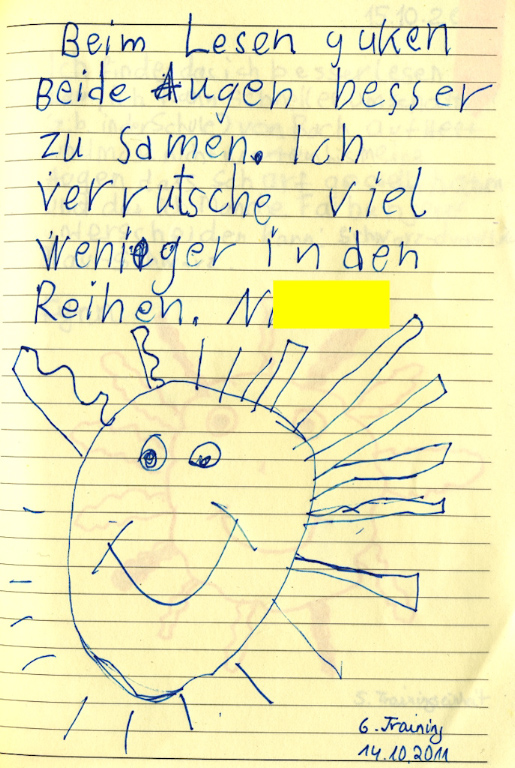 Beim Lesen guken
Beide Augen besser
zu samen. Ich
verrutsche viel
weniger in den
Reihen. Ni
6. Training
14.10.2011